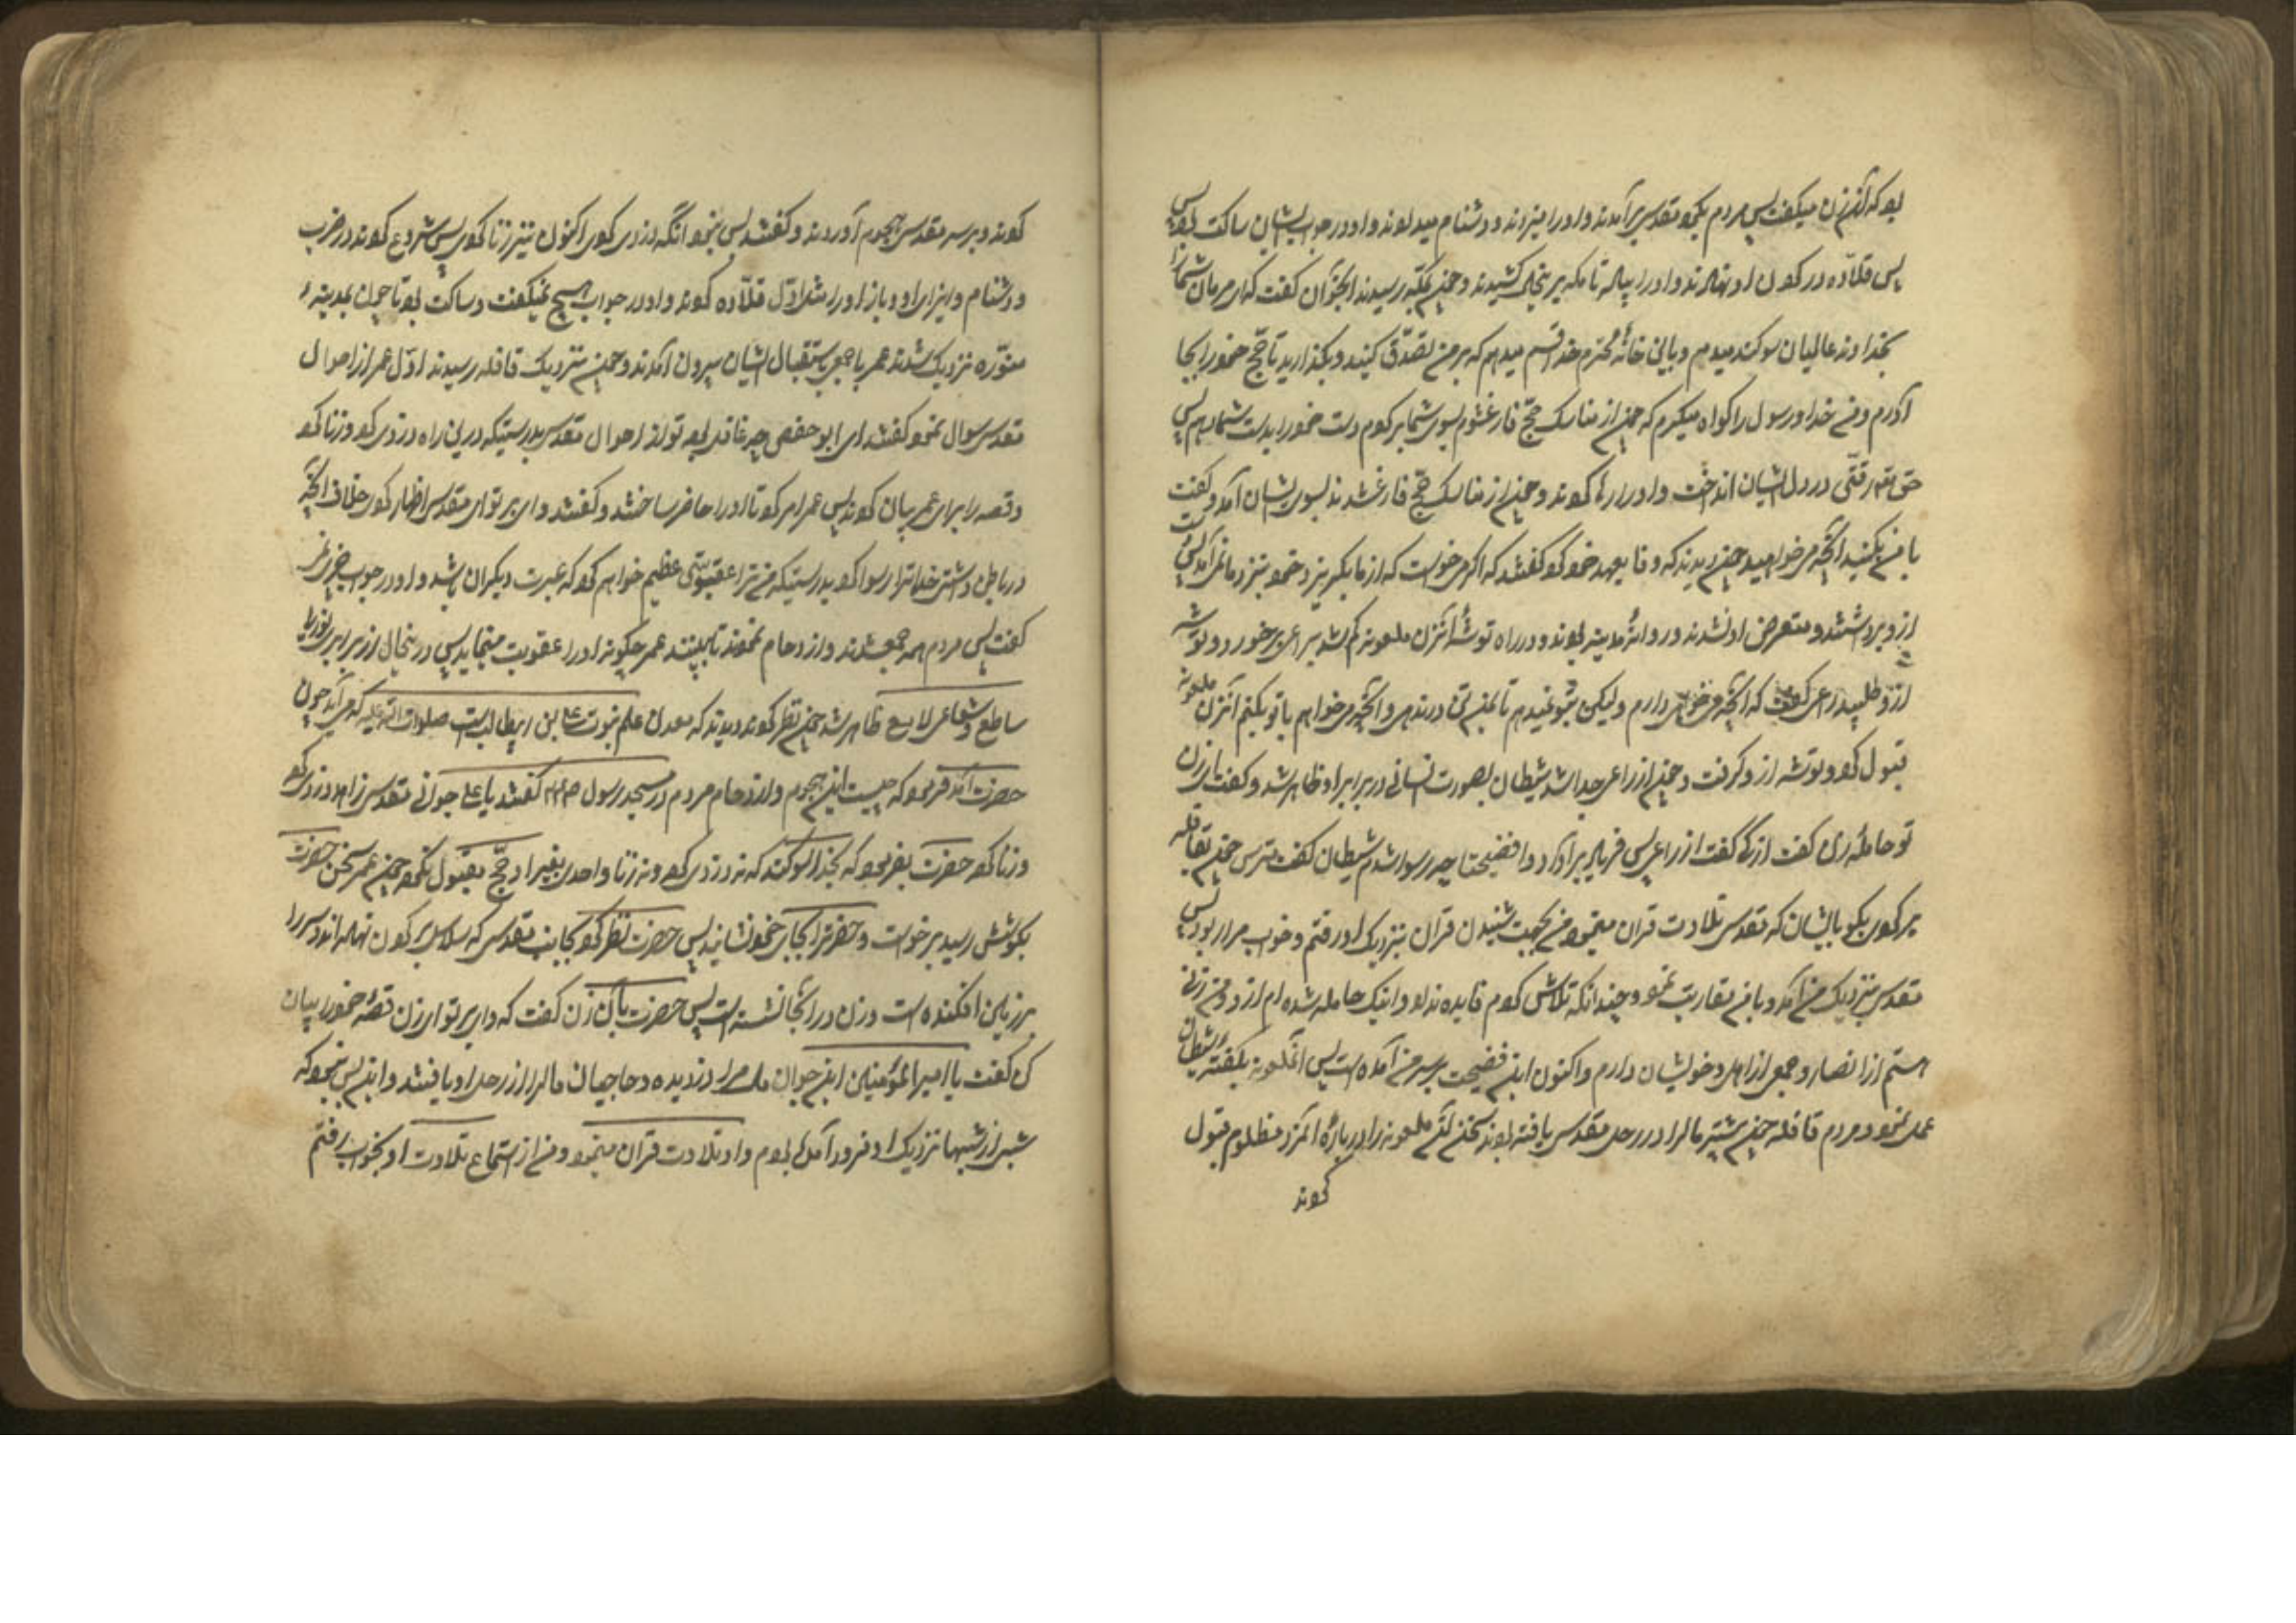 بود که آنزن میگفت پس مردم بگرد مقدسی برآمدند و او را میزدند و دشنام میدادند و او در جواب ایشان ساکت بود پس
پس قلاده در گردن او نهادند و او را پیاده تا مکه بر میکشیدند و چون بمکه رسیدند آنجوان گفت که ای مردمان شما را
بخداوند عالمیان سوکند میدهم و باین خانهٔ محترم خدا قسم میدهم که بر من تصدّق کنید و بگذارید تا حج خود را بجا
آورم و من خدا و رسول را گواه میگیرم که چون از مناسک حجّ فارغ شوم بسوی شما برگردم و دست خود را بدست شما دهم پس
حق تعالی رقّتی در دل ایشان انداخت و او را رها کردند و چون از مناسک حجّ فارغ شد نزد بسوی ایشان آمد و گفت
با من بکنید آنچه میخواهید چون دیدند که وفا بعهد خود کرد گفتند که اگر میخواست که از ما بگریزد خود بنزد ما نمی آمد
ازو برداشتند و متعرض او نشدند و روانهٔ مدینه بودند و در راه توشهٔ آنزن ملعونه کم شد براعی برخورد و توشه
ازو طلبید راعی گفت که آنچه میخواهی دارم ولیکن بتو نمیدهم تا بمن تن در ندهی و آنچه میخواهم با تو بکنم آنزن ملعونه
قبول کرد و توشه ازو گرفت و چون از راعی جدا شد شیطان بصورت انسانی در برابر او ظاهر شد و گفت ای زن
تو حامله ای گفت از که گفت از راعی پس فریاد برآورد و وا فضیحتا چه رسوا شدم شیطان گفت مترس چون بقافله
برگردی بگو بایشان که مقدسی تلاوت قران مینمود من بجهت شنیدن قران بنزدیک او رفتم و خواب مرا ربود پس
مقدسی بنزدیک من آمد و با من مقاربت نمود و چندانکه تلاش کردم فایده نداد و اینک حامله شده ام ازو و من زنی
هستم از انصار و جمعی از اهل و خویشان دارم و اکنون این فضیحت بر سر من آمده است پس آنملعونه بگفتهٔ شیطان
عمل نمود و مردم قافله چون پیشتر مال را در رحل مقدسی یافته بودند سخن آن ملعونه را در بارهٔ آنمرد مظلوم قبول
کردند
کردند و بر سر مقدسی هجوم آوردند و گفتند بس نبود آنکه دزدی کردی اکنون نیز زنا کردی پس شروع کردند در ضرب
و دشنام و ایذای او و باز او را مثل اوّل قلّاده کردند و او در جواب هیچ نمیگفت و ساکت بود تا چون بمدینهٔ
منوّره نزدیک شدند عمر با جمعی باستقبال ایشان بیرون آمدند و چون بنزدیک قافله رسیدند اوّل عمر از احوال
مقدسی سوال نمود گفتند ای ابو حفص چه غافلی بود تو از احوال مقدسی بدرستیکه درین راه دزدی کرد و زنا کرد
و قصه را برای عمر بیان کردند پس عمر امر کرد تا او را حاضر ساختند و گفتند وای بر تو ای مقدسی اظهار کردی خلاف آنچه
در باطن داشتی خدا ترا رسوا کرد بدرستیکه من ترا عقوبتی عظیم خواهم کرد که عبرت دیگران باشد و او در جواب چیزی نمی
گفت پس مردم همه جمع شدند و ازدحام نمودند تا ببینند عمر چگونه او را عقوبت مینماید پس در آنحال از برابر نوری
ساطع و شعاعی لامع ظاهر شد چون نظر کردند دیدند که معدن علم نبوت علی بن ابیطالبست صلوات الله علیه که می آید چون
حضرت آمد فرمود که چیست این هجوم و ازدحام مردم در مسجد رسول گفتند یا علی جوانی مقدسی زاهد دزدی کرد
و زنا کرد حضرت بفرمود که بخدا سوکند که نه دزدی کرد و نه زنا و احدی بغیر او حجّ مقبول نکرد چون عمر سخن حضرت
بگوشش رسید برخواست و حضرت را بجای خود نشانید پس حضرت نظر کرد بجانب مقدسی که سلاسل بر گردن نهاده اند و سر را
بر زمین افکنده است و زن در آنجا نشسته است پس حضرت بآن زن گفت که وای بر تو ای زن قصهٔ خود را بیان
کن گفت یا امیر المؤمنین این جوان مال مرا دزدیده و حاجیان مال را از رحل او یافتند و این بس نبود که
شبی از شبها نزدیک او فرود آمده بودم و او تلاوت قران مینمود و من از استماع تلاوت او بخواب رفتم